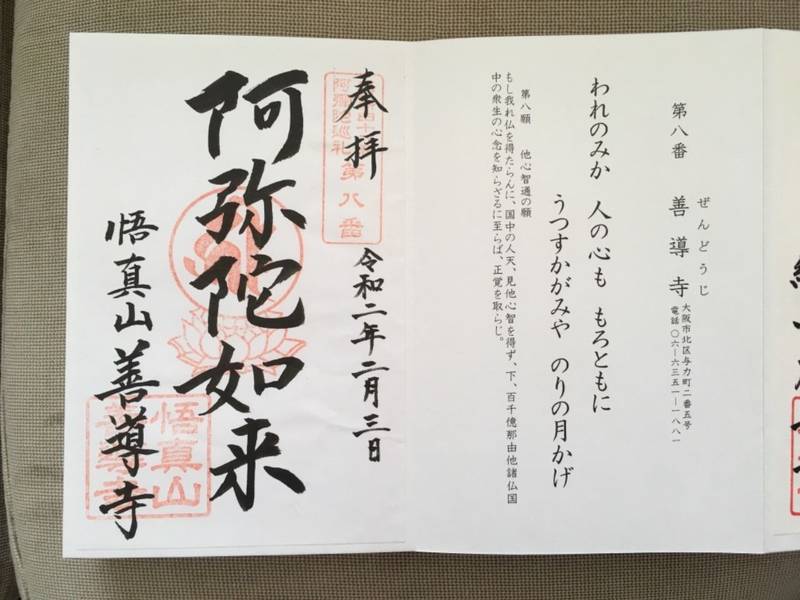 第八番 善導寺
ぜんどうじ
大阪市北区与力町二番五号
電話〇六―六三五一―一八八一
われのみか 人の心も もろともに
うつすかがみや のりの月かげ
第八願 他心智通の願
もし我れ仏を得たらんに、国中の人天、見他心智を得ず、下、百千億那由他諸仏国
中の衆生の心念を知らざるに至らば、正覚を取らじ。
奉拝
令和二年二月三日
阿弥陀巡礼
第八番
阿弥陀如来
悟真山善導寺
悟真山
善導寺